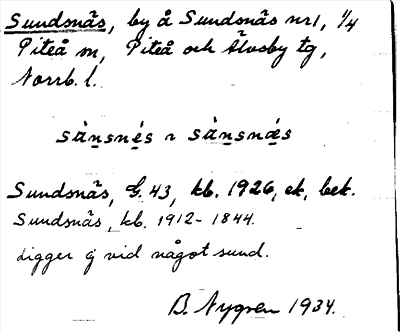 Sundsnäs, by å Sundsnäs nr 1, 1/4
Piteå m, Piteå och Älvsby tg,
Norrb. l.
sànsnés ~ sànsnǽs
Sundsnäs, G. 43, kb. 1926, ek, bek.
Sundsnäs, kb. 1912-1844.
Ligger ej vid något sund.
B. Nygren 1934.